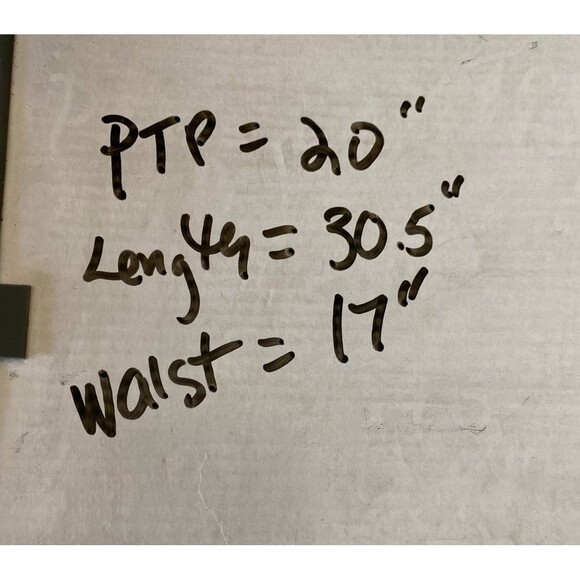 PTP = 20"
Length = 30.5"
Waist = 17"